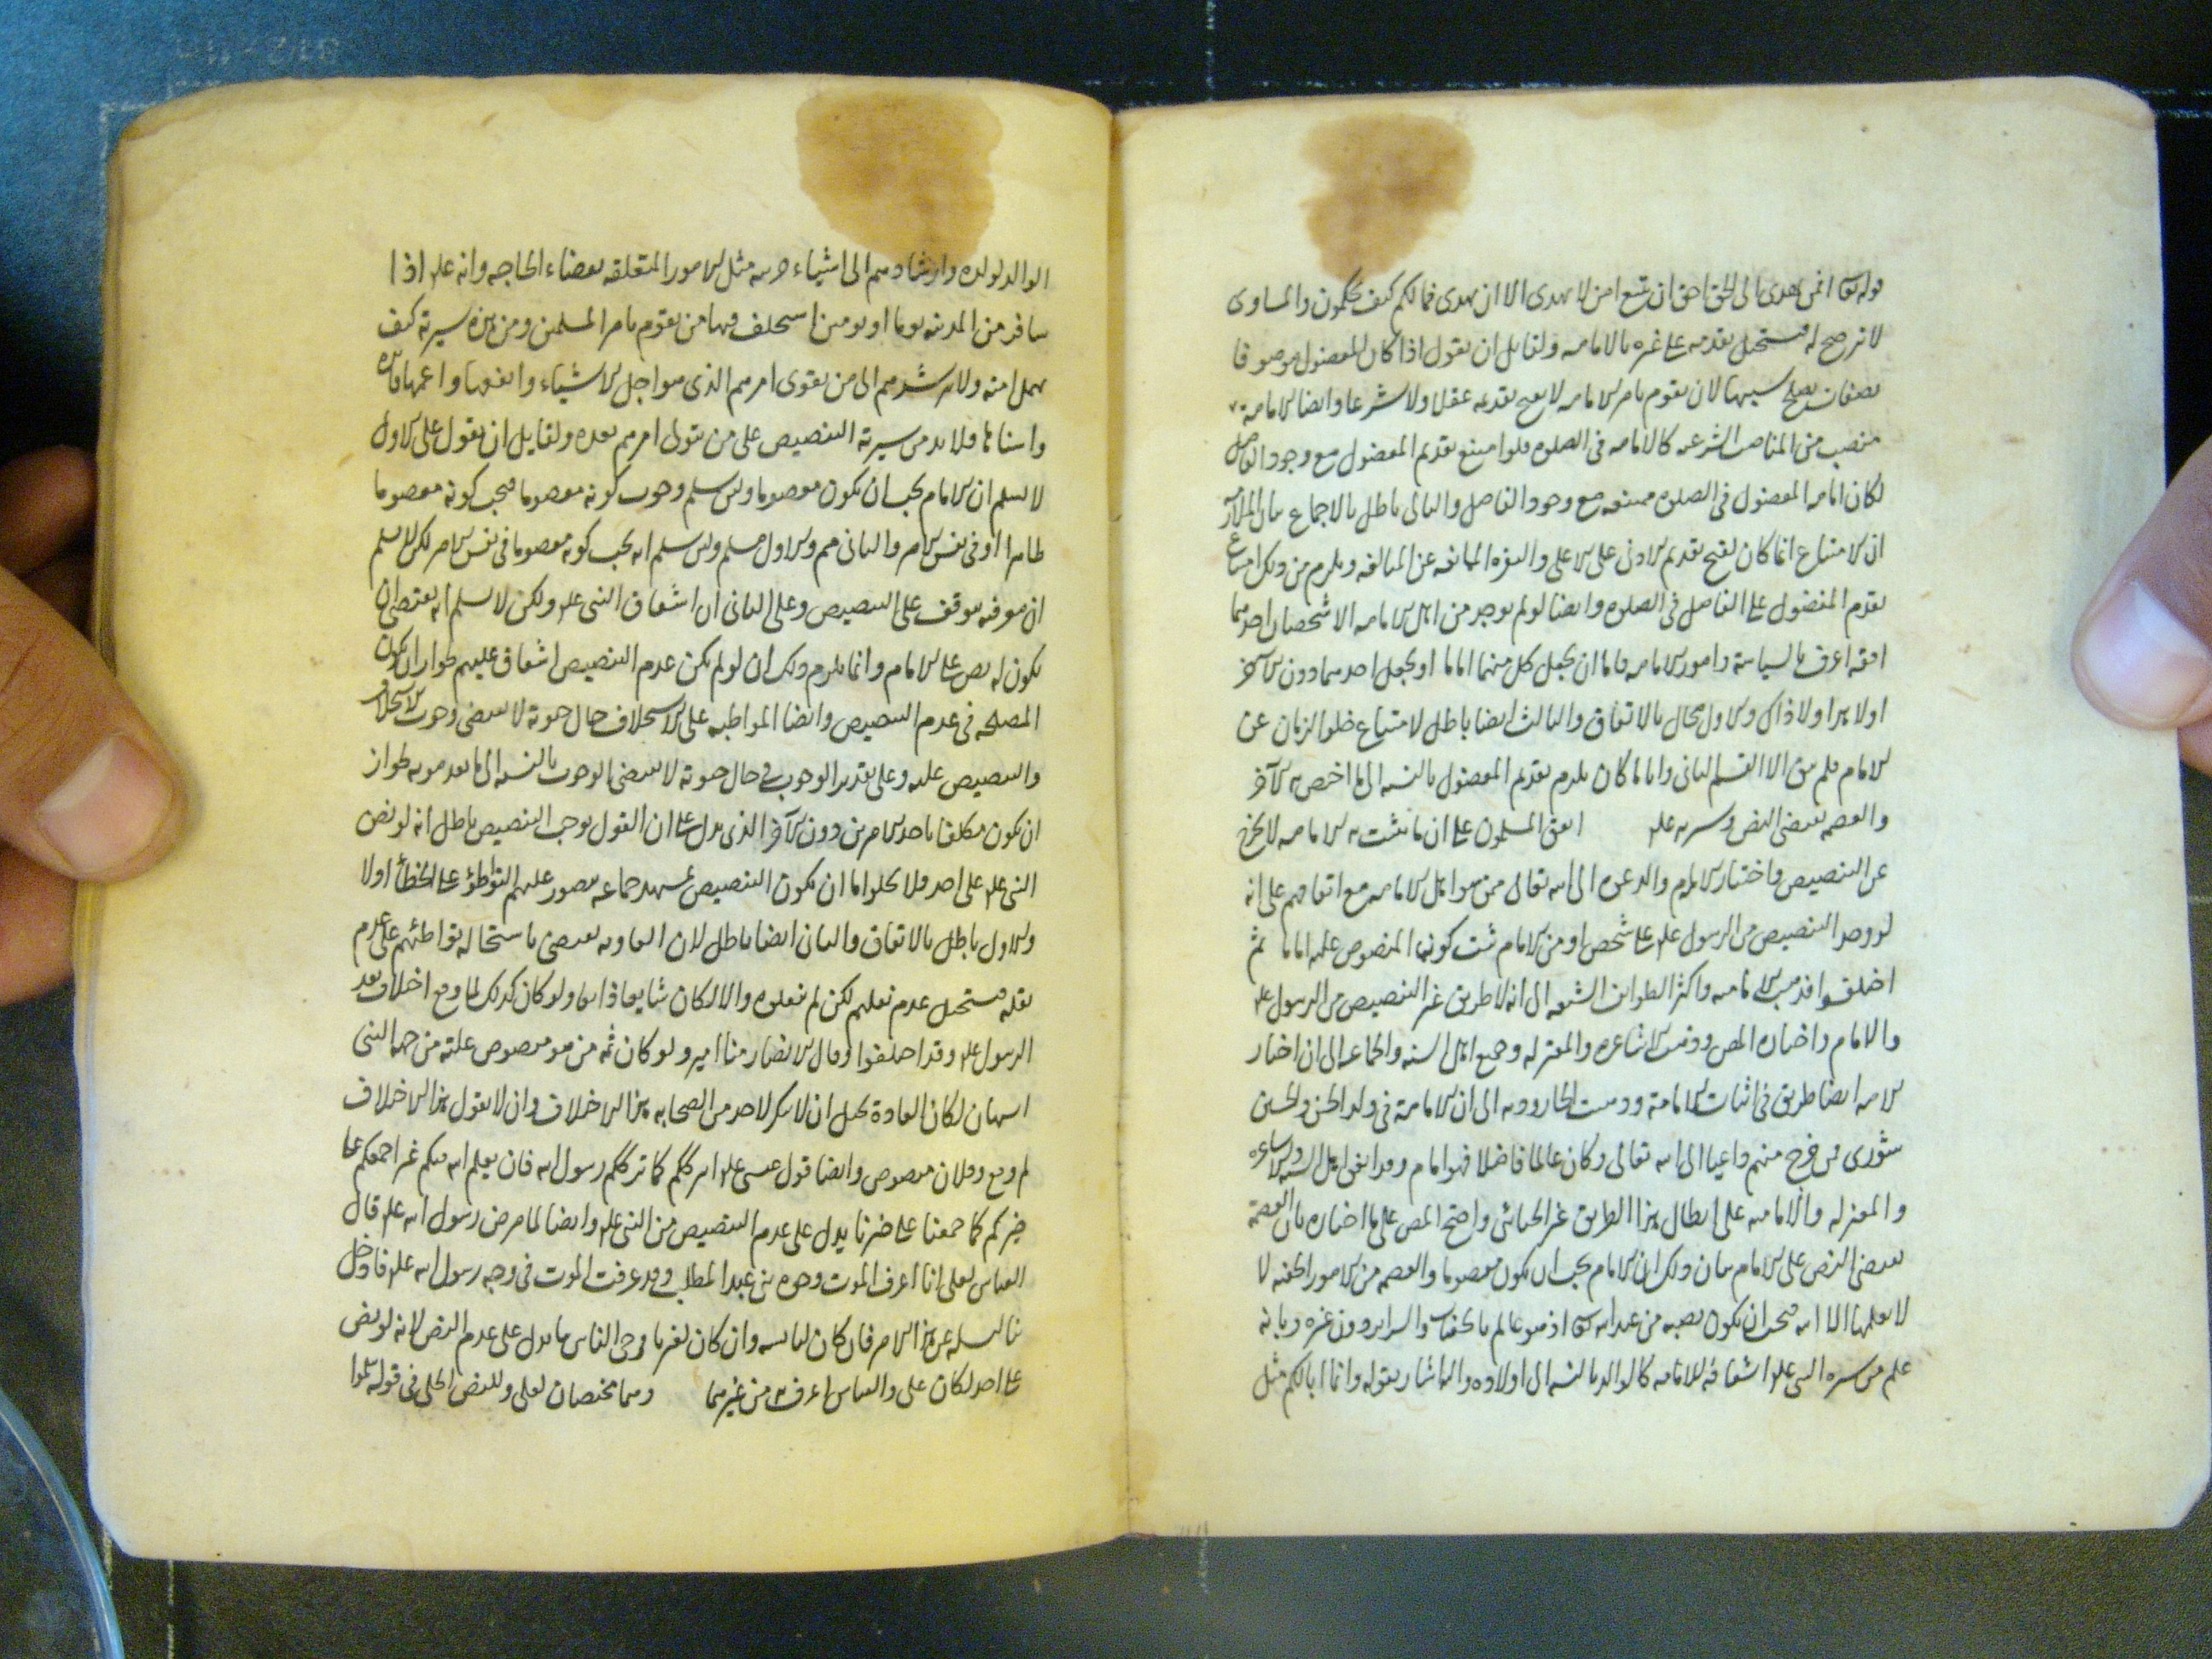 قوله تعالى افمن يهدى الى الحق احق ان يتبع امن لا يهدى الا ان يهدى فما لكم كيف تحكمون والمساوى
لا ترجح له فيستحيل تقدمه على غيره بالامامه ولقايل ان يقول اذا كان المفضول موصوفا
بصفات يصلح سببها لان يقوم بامر الامامه لا يقبح تقديمه عقلا ولا شرعا وايضا الامامة
منصب من المناصب الشرعيه كالامامه فى الصلوه فلو امتنع تقديم المفضول مع وجود الفاضل
لكان امامه المفضول فى الصلوه ممتنعه مع وجود الفاضل والتالى باطل بالاجماع بيان الملازمه
ان الامتناع انما كان لقبح تقديم الادنى على الاعلى والنفره المانعه عن المتابعه ويلزم من ذلك امتناع
تقدم المفضول على الفاضل فى الصلوه وايضا لو لم يوجد من اهل الامامه الا شخصان احدهما
افقه اعرف بالسياسة وامور الامامه فاما ان يجعل كل منهما اماما او يجعل احدهما دون الآخر
او لا هذا ولا ذاك والاول محال بالاتفاق والثالث ايضا باطل لامتناع خلو الزمان عن
الامام فلم يبق الا القسم الثانى واياما كان يلزم تقديم المفضول بالنسبه الى ما اختص به الآخر
والعصمه تقتضى النص وسيرته علم اتفق المسلمون على ان ما يثبت به الامامه لا يخرج
عن التنصيص واختيار الامام والدعوه الى الله تعالى ممن هو اهل للامامه مع اتفاقهم على انه
لو وجد التنصيص من الرسول علم على شخص او من الامام ثبت كون المنصوص عليه اماما ثم
اختلفوا فذهب الاماميه واكثر الطوائف الشيعه الى انه لا طريق غير التنصيص من الرسول علم
والامام واختاره المص وذهب الاشاعره والمعتزله وجميع اهل السنه والجماعه الى ان اختيار
الامه ايضا طريق فى اثبات الامامة وذهبت الجاروديه الى ان الامامة فى ولد الحسن والحسين
شورى من خرج منهم داعيا الى الله تعالى وكان عالما فاضلا فهو امام وقد اتفق اهل السنه والاشاعره
والمعتزله والاماميه على ابطال هذا الطريق غير الجبائى واحتج المص على ما اختاره بان العصمة
تقتضى النص على الامام بيان ذلك ان الامام يجب ان يكون معصوما والعصمه من الامور الخفيه لا
لا يعلمها الا الله فيجب ان يكون نصبه من عند الله تعالى اذ هو عالم بالخفيات والسراير دون غيره وبانه
علم من سيره النبى علم اشفاقه للامامه كالوالد بالنسبه الى اولاده واليه اشار بقوله وانما انا لكم مثل
الوالد لولده وارشادهم الى اشياء جزييه مثل الامور المتعلقه بقضاء الحاجه وانه علم اذا
سافر من المدينه يوما او يومين استخلف فيها من يقوم بامر المسلمين ومن هذه سيرته كيف
يهمل امته ولا يرشدهم الى من يقوى امرهم الذى هو اجل الاشياء وانفعها واعمها فائده
واسناها فلا بد من سيرته التنصيص على من يتولى امرهم بعده ولقايل ان يقول على الاول
لا نسلم ان الامام يجب ان يكون معصوما ولئن سلم وجوب كونه معصوما فيجب كونه معصوما
ظاهرا او فى نفس الامر والثانى مم والاول مسلم ولئن سلم انه يجب كونه معصوما فى نفس الامر لكن لا نسلم
ان معرفته موقف على التنصيص وعلى الثانى ان اشفاق النبى علم ولكن لا نسلم انه يقتضى ان
يكون له نص على الامام وانما يلزم ذلك ان لو لم يكن عدم التنصيص اشفاق عليهم لجواز ان يكون
المصلحه فى عدم التنصيص وايضا المواظبه على الاستخلاف حال حيوته لا يقتضى وجوب الاستخلاف
والتنصيص عليه وعلى تقدير الوجوب فى حال حيوته لا يقتضى الوجوب بالنسبه الى ما بعد موته لجواز
ان يكون مكلفا باحد الامرين دون الآخر الذى يدل على ان القول بوجوب التنصيص باطل انه لو نص
النبى علم على احد فلا يخلو اما ان يكون التنصيص بمشهد جماعه يتصور عليهم التواطؤ على الخطأ او لا
والاول باطل بالاتفاق والثانى ايضا باطل لان العاده تقتضى باستحاله تواطئهم على عدم
نقله فيستحيل عدم نقلهم لكن لم ينقلوه والا لكان شايعا ذايعا ولو كان كذلك لما وقع اختلاف بعد
الرسول علم وقد اختلفوا وقال الانصار منا امير ولو كان ثمه من هو منصوص عليه من جهه النبى
لكان العادة تحيل ان لا ينكر لاحد من الصحابه هذا الاختلاف وان لا يقول هذا الاختلاف
لم وقع وفلان منصوص وايضا قول على علم اترككم كما ترككم رسول الله فان يعلم الله فيكم خيرا جمعكم على
خيركم كما جمعنا على خيرنا يدل على عدم التنصيص من النبى علم وايضا لما مرض رسول الله علم قال
العباس لعلى انا اعرف الموت وجوه بنى عبد المطلب وقد عرفت الموت فى وجه رسول الله علم فادخل
بنا نسأله عن هذا الامر فان كان لنا بينه وان كان لغيرنا وصى الناس بنا يدل على عدم النص لانه لو نص
على احد لكان على والعباس اعرف به من غيرهما وهما مختصان لعلى وللنص الجلى فى قوله سلموا